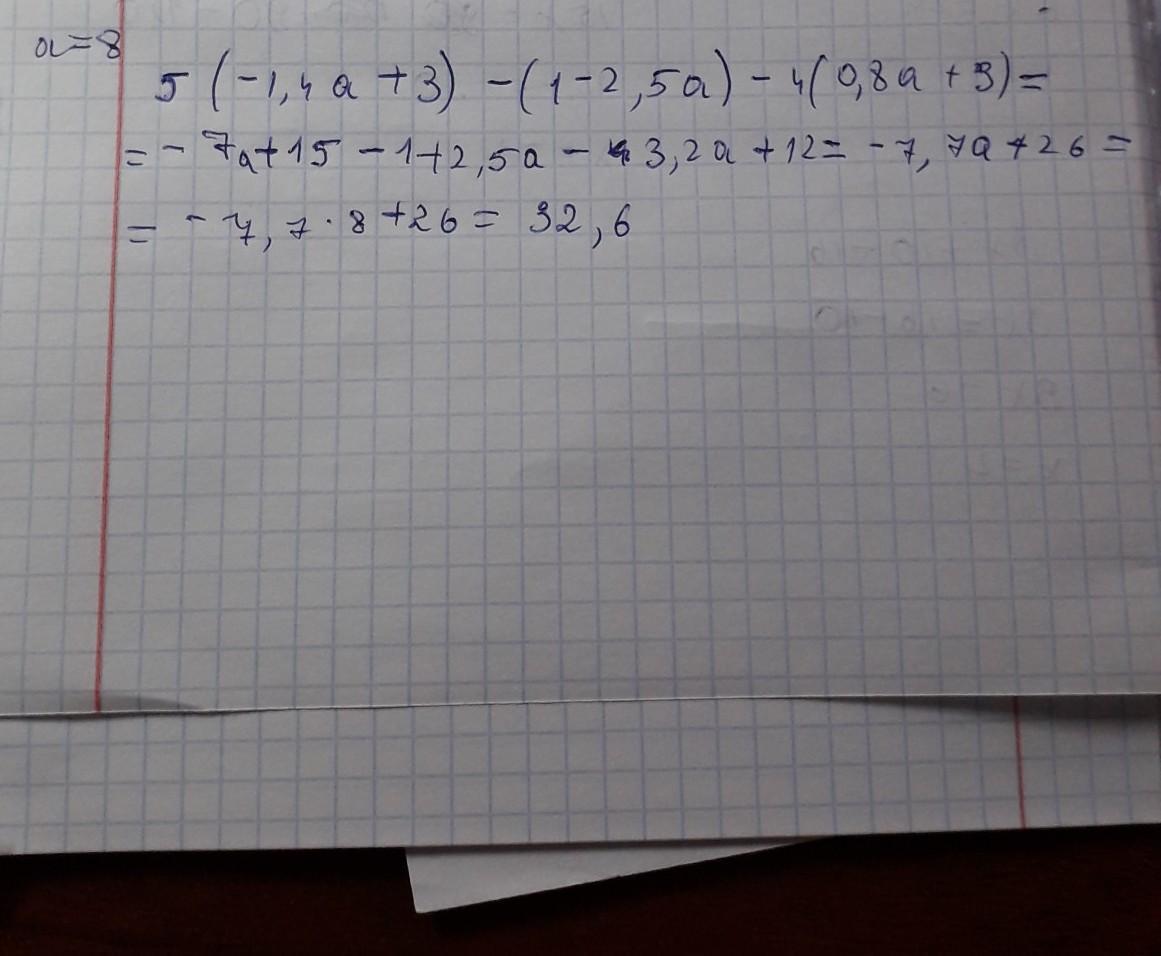 a=8
5(-1,4a+3)-(1-2,5a)-4(0,8a+3)=
=-7a+15-1+2,5a-3,2a+12=-7,7a+26=
=-7,7·8+26=32,6